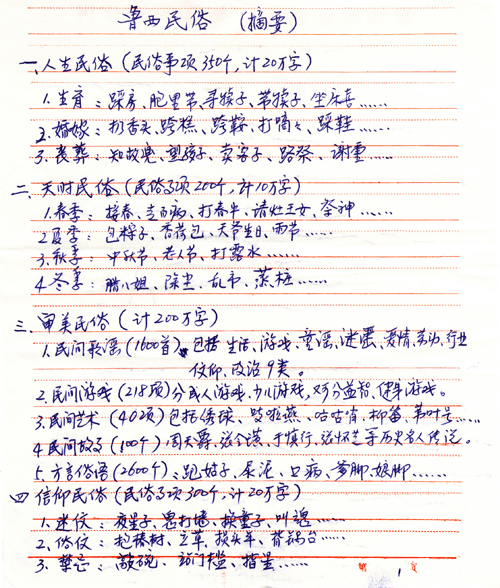 鲁西民俗 (摘要)
一、人生民俗 (民俗事项350个, 计20万字)
1. 生育: 踩房、胞里带、寻猴子、带猴子、坐床喜……
2. 婚嫁: 扔舌头、跨糕、跨鞍、打嘀々、踩鞋……
3. 丧葬: 知故兜、孩子、卖客子、路祭、谢……
二、天时民俗 (民俗事项200个, 计10万字)
1. 春季: 接春、走百病、打春牛、请灶王女、祭神……
2. 夏季: 包粽子、香荷包、天爷生日、雨节……
3. 秋季: 中秋节、老人节、打露水……
4. 冬季: 腊小姐、除尘、乱市、蒸桩……
三、审美民俗 (计200万字)
1. 民间歌谣 (1600首) 包括生活、游戏、童谣、迷恶、爱情、劳动、行业
信仰、政治9类。
2. 民间游戏 (218项) 分成人游戏、少儿游戏, 又可分益智、健身游戏。
3. 民间艺术 (40项) 包括绣球、咕咕肖、柳笛、苇叶号……
4. 民间故事 (100个) 周天爵、于慎行、等历史名人传说。
5. 方言俗语 (2600个): 跑姑子、尿泥、口病、爹脚、娘脚……
四、信仰民俗 (民俗事项300个, 计20万字)
1. 迷信: 夜星子、鬼打墙、换童子、叫魂……
2. 俗信: 抱椿树、立草、探头年、……
3. 禁忌: 敲碗、站门槛、指星……
1